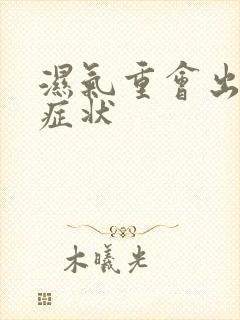 濕氣重會出
症狀
木曦光